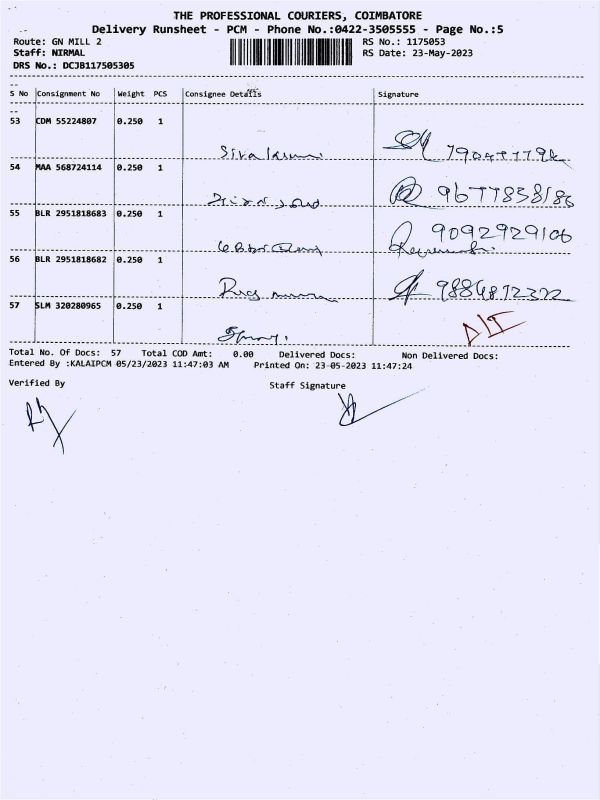 THE PROFESSIONAL COURIERS, COIMBATORE
Delivery Runsheet - PCM - Phone No.:0422-3505555 - Page No.:5
Route: GN MILL 2
RS No.: 1175053
Staff: NIRMAL
RS Date: 23-May-2023
DRS No.: DCJB117505305
S No Consignment No Weight PCS Consignee Details Signature
53 CDM 55224807 0.250 1
54 MAA 568724114 0.250 1
9677858186
55 BLR 2951818683 0.250 1
9092929106
56 BLR 2951818682 0.250 1
57 SLM 320280965 0.250 1
Total No. Of Docs: 57 Total COD Amt: 0.00 Delivered Docs: Non Delivered Docs:
Entered By :KALAIPCM 05/23/2023 11:47:03 AM Printed On: 23-05-2023 11:47:24
Verified By Staff Signature